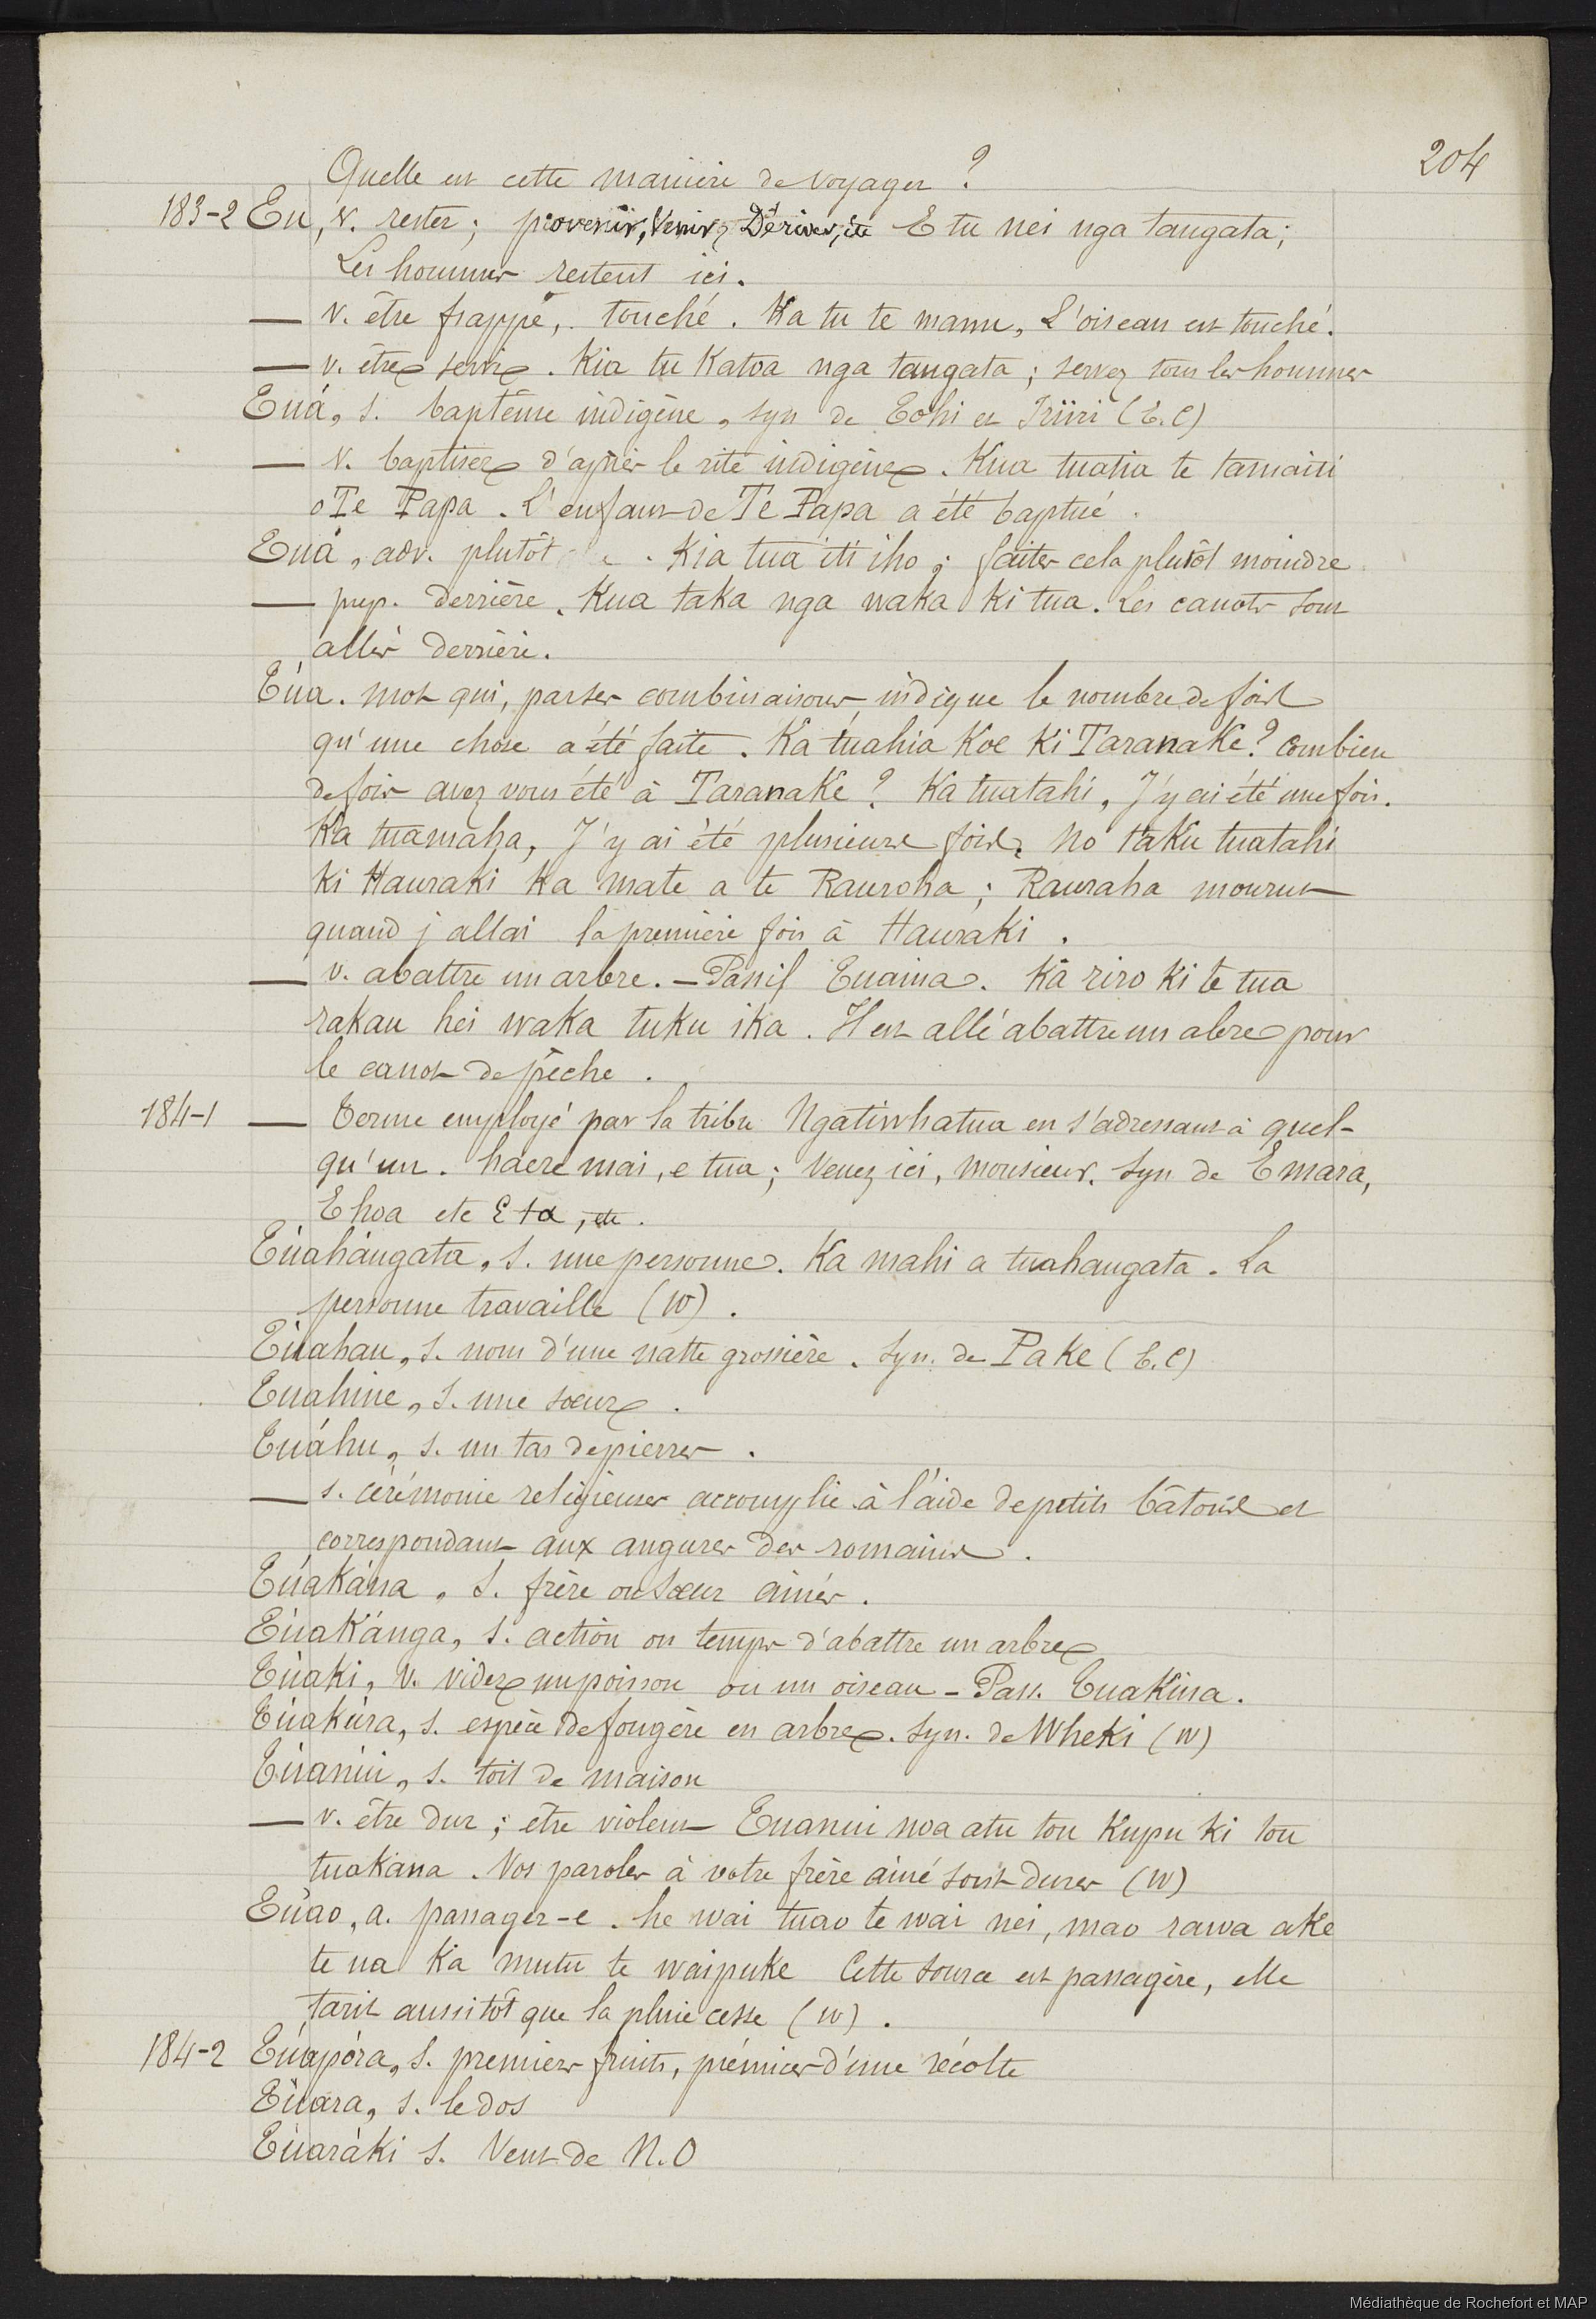 204
Quelle est cette manière de voyager ?
183-2 Tu, v. rester ; provenir, Venir, Dériver, etc E tu nei nga tangata ;
Les hommes restent ici.
— v. être frappé, touché. Ka tu te manu, L'oiseau est touché.
— v. être servi. Kia tu Katoa nga tangata ; servez tous les hommes
Tuá, s. baptême indigène, syn de Tohi et Iriiri (T.C)
— v. baptiser d'après le rite indigène. Kua tuatia te tamaiti
o Te Papa. L'enfant de Te Papa a été baptisé.
Tuá, adv. plutôt . Kia tua iti iho ; faites cela plutôt moindre
— prep. derrière. Kua taka nga waka ki tua. Les canots sont
allés derrière.
Túa. mot qui, par ses combinaisons, indique le nombre de fois
qu'une chose a été faite. Ka tuahia Koe Ki TaranaKe ? combien
de fois avez vous été à TaranaKe ? Ka tuatahi, J'y ai été une fois.
Ka tuamaha, J'y ai été plusieurs fois. No taku tuatahi
ki Hauraki ka mate a te Rauroha ; Rauraha mourut
quand j'allai la première fois à Hauraki.
— v. abattre un arbre. — Passif Tuaina. Ka riro ki te tua
rakau hei waka tuku ika. Il est allé abattre un abre pour
le canot de pêche.
184-1 — Terme employé par la tribu Ngatiwhatua en s'adressant à quel-
qu'un. haere mai, e tua ; venez ici, monsieur. Syn de E mara,
E hoa etc E ta, etc.
Túahángata, s. une personne. Ka mahi a tuahangata. La
personne travaille (W).
Túahau, s. nom d'une natte grossière. Syn. de PaKe (T.C)
Tuahine, s. une soeur.
Tuáhu, s. un tas de pierres.
— s. cérémonie religieuse accomplie à l'aide de petits bâtons et
correspondant aux augures des romains.
TúaKána, s. frère ou soeur ainés.
TúaKánga, s. action ou temps d'abattre un arbre
Túaki, v. vider un poisson ou un oiseau — Pass. TuaKina.
Túakúra, s. espèce de fougère en arbre. Syn. de WheKi (W)
Túanúi, s. toit de maison
— v. être dur ; être violent Tuanui noa atu tou Kupu ki tou
tuakana. Vos paroles à votre frère ainé sont dures (W)
Túao, a. passager-e. he wai tuao te wai nei, mao rawa ake
te ua Ka mutu te waipuke Cette source est passagère, elle
tarit aussitôt que la pluie cesse (W).
184-2 Túapóra, s. premiers fruits, prémices d'une récolte
Túara, s. le dos
Túaráki s. Vent de N.O
Médiathèque de Rochefort et MAP